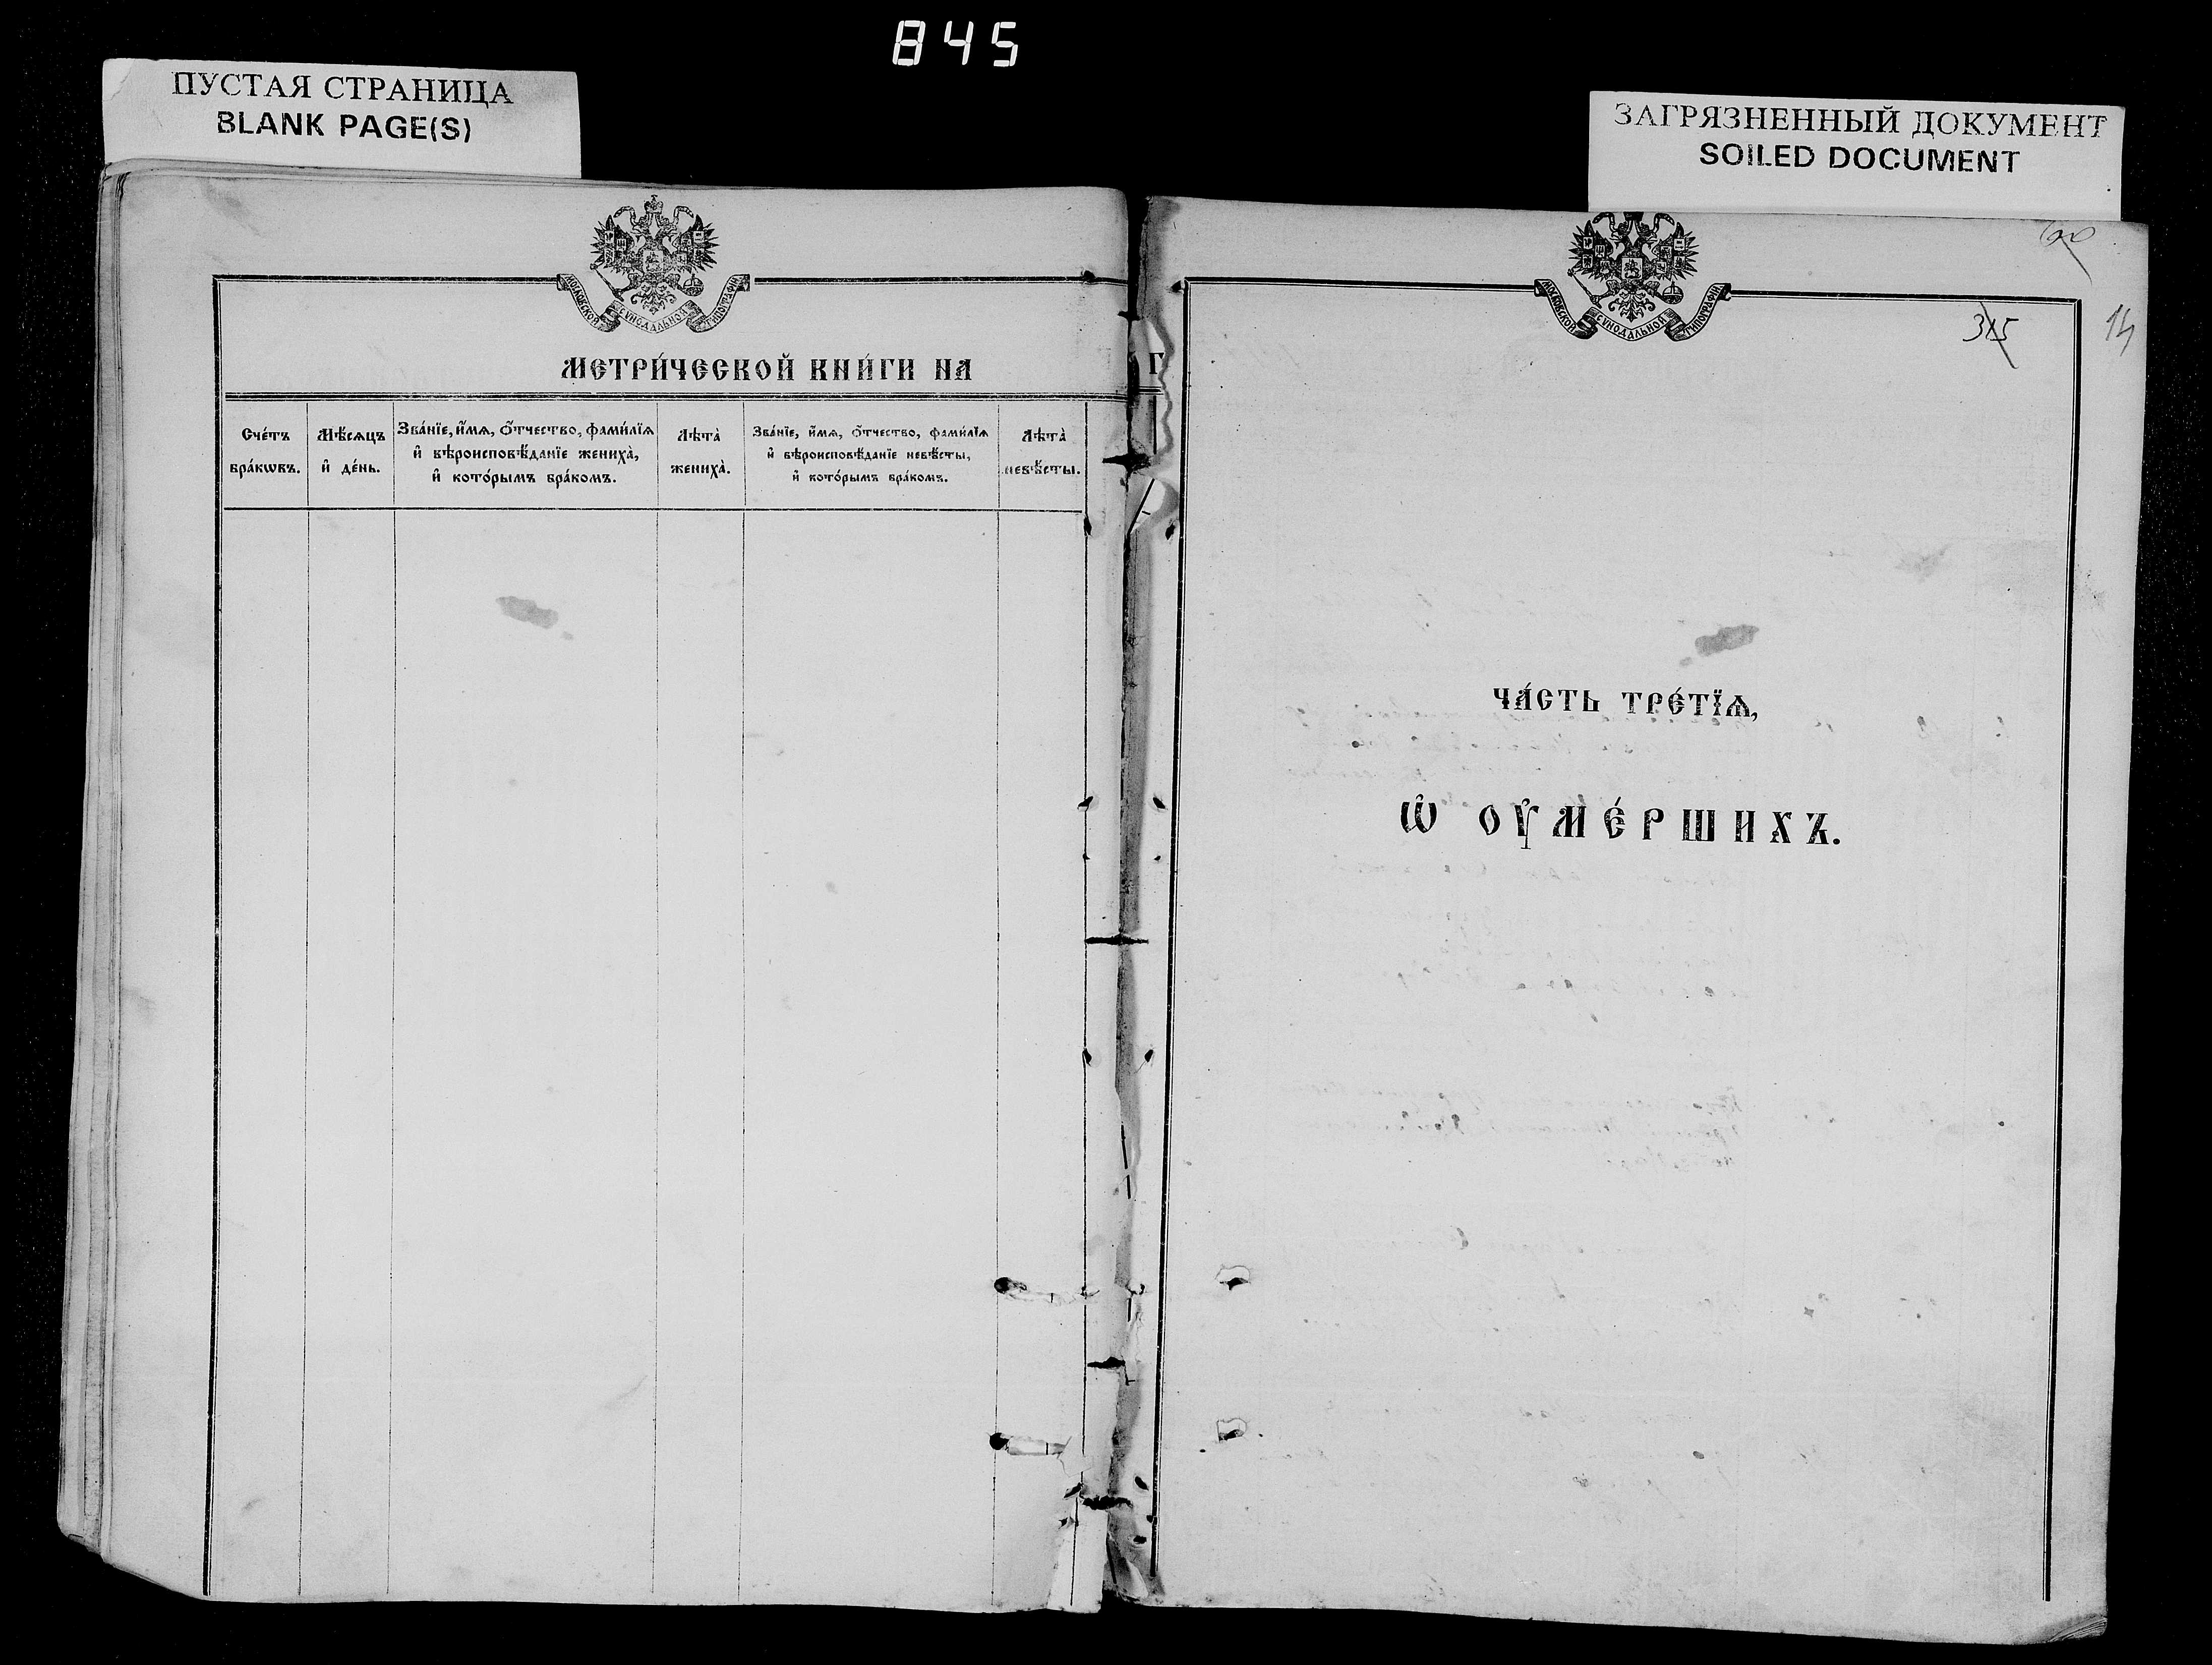 845
ПУСТАЯ СТРАНИЦА
BLANK PAGE(S)
ЗАГРЯЗНЕННЫЙ ДОКУМЕНТ
SOILED DOCUMENT
МОСКОВСКОЙ СѴНОДАЛЬНОЙ ТИПОГРАФІИ
МЕТРИ́ЧЕСКОЙ КНИ́ГИ НА
Сче́тъ бра́кѡвъ.
Мѣ́сѧцъ и҆ де́нь.
Зва́нїе, и҆́мѧ, ѻ҆́тчество, фами́лїѧ
и҆ вѣроисповѣ́данїе жениха̀,
и҆ кото́рымъ бра́комъ.
Лѣта̀ жениха̀.
Зва́нїе, и҆́мѧ, ѻ҆́тчество, фами́лїѧ
и҆ вѣроисповѣ́данїе невѣ́сты,
и҆ кото́рымъ бра́комъ.
Лѣта̀ невѣ́сты.
Г
МОСКОВСКОЙ СѴНОДАЛЬНОЙ ТИПОГРАФІИ
315
14
ЧА́СТЬ ТРЕ́ТЇѦ,
Ѡ҆ ОУ҆МЕ́РШИХЪ.